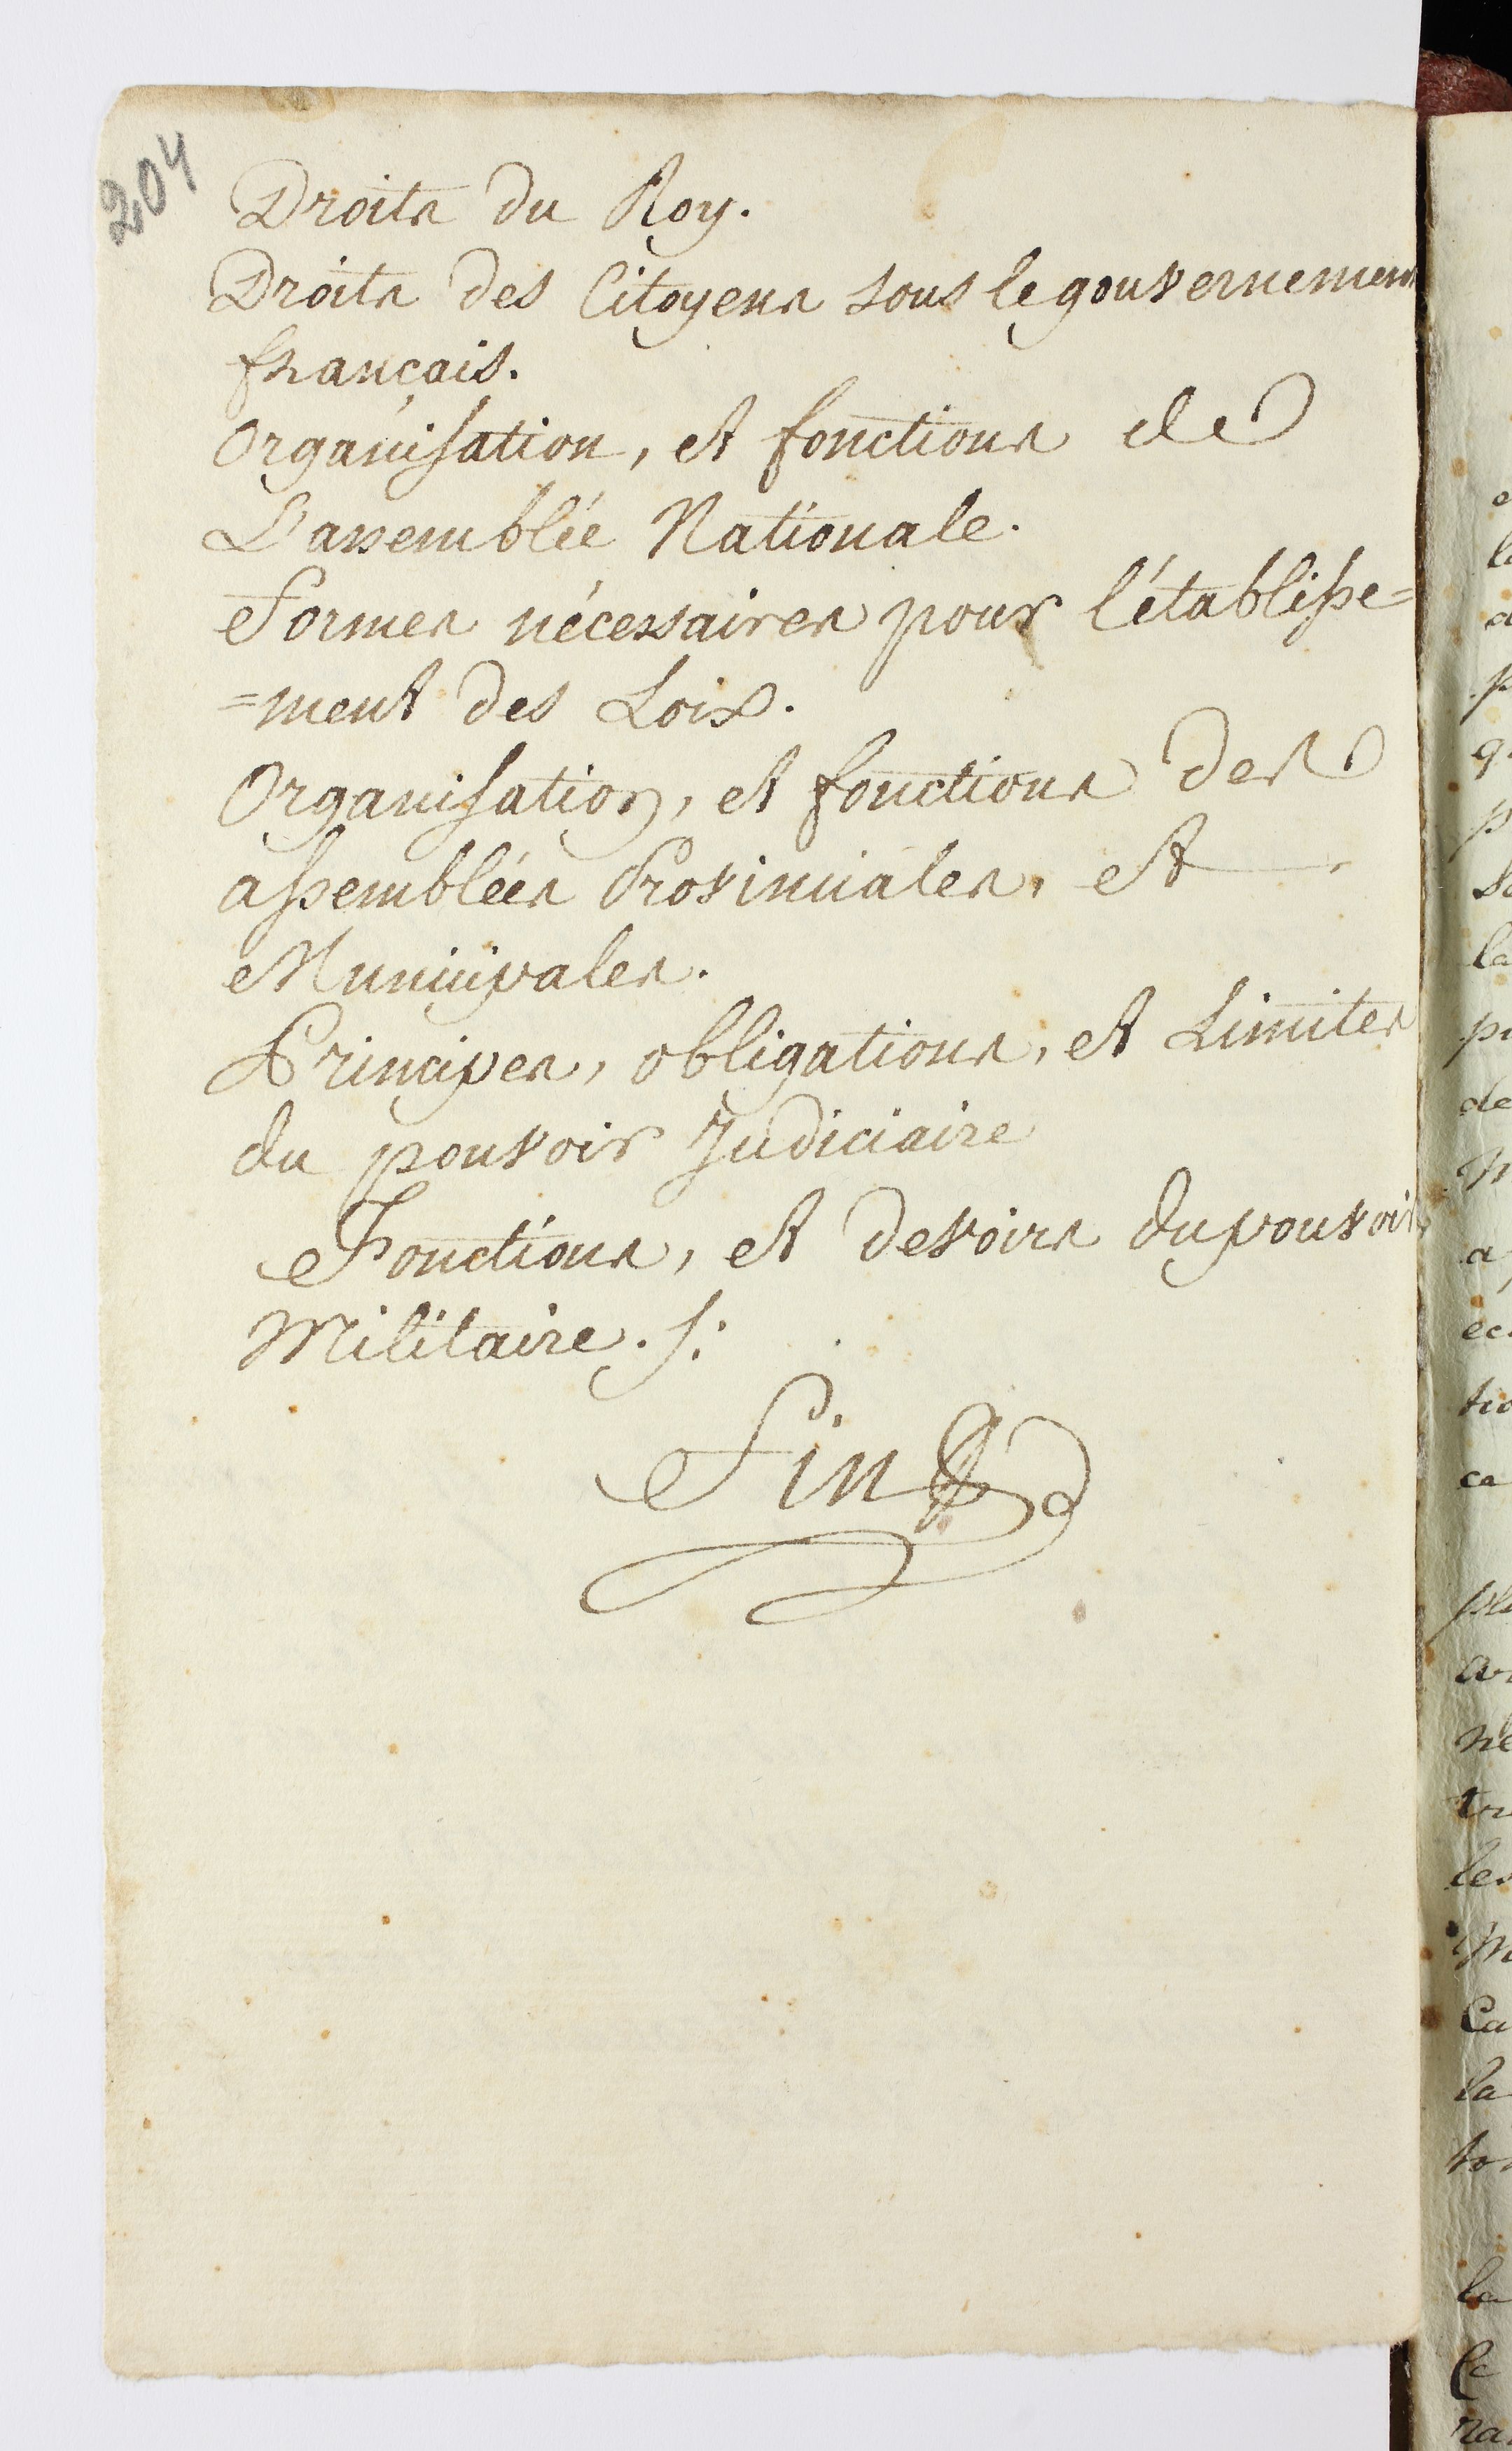 204
Droits du Roy.
Droits des Citoyens sous le gouvernement
français.
Organisation, et fonctions de
L'assemblée Nationale.
Formes nécessaires pour l'établisse=
=ment des Loix.
Organisation, et fonctions des
assemblées Provinciales, et
Municipales.
Principes, obligations, et Limites
du pouvoir Judiciaire
Fonctions, et devoirs du pouvoir
Militaire.
Fin